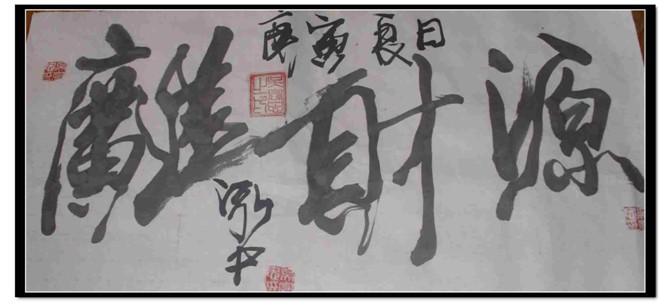 庚寅夏日
廣進財源